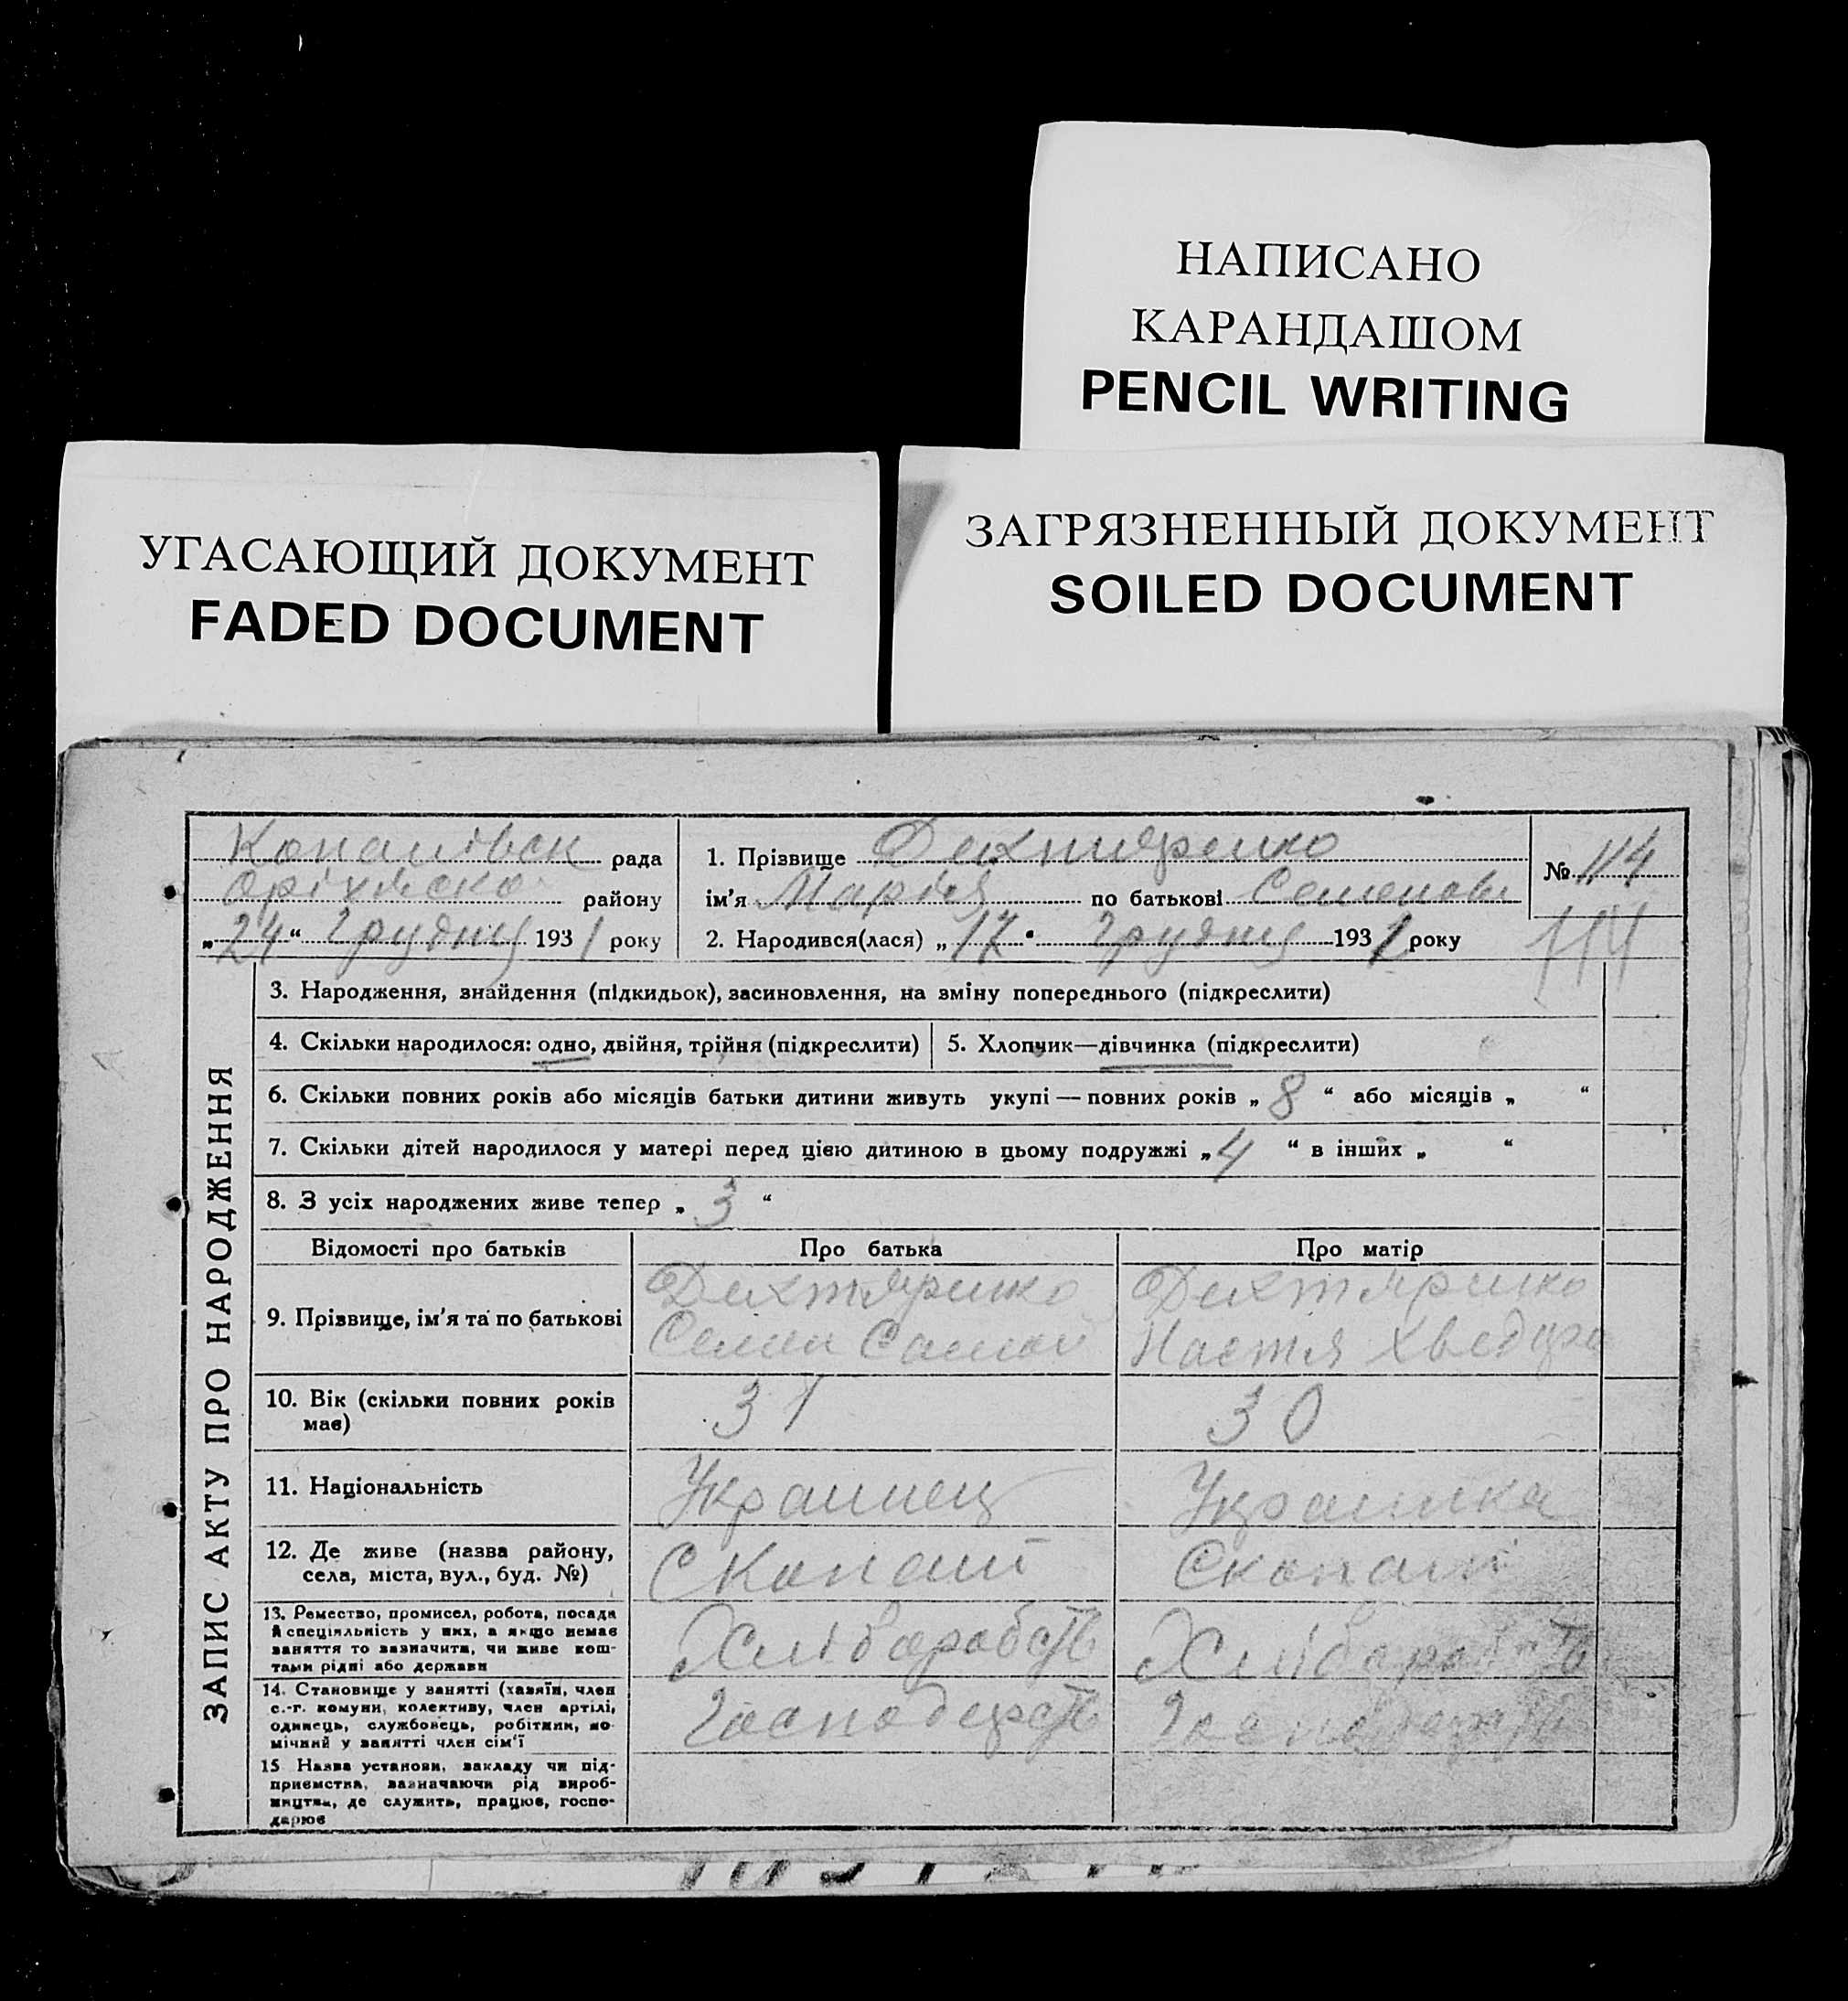 НАПИСАНО
КАРАНДАШОМ
PENCIL WRITING
УГАСАЮЩИЙ ДОКУМЕНТ
FADED DOCUMENT
ЗАГРЯЗНЕННЫЙ ДОКУМЕНТ
SOILED DOCUMENT
Копанівск рада
Оріхівско району
„24“ Грудня 1931 року
1. Прізвище Дихтяренко
ім'я Марія по батькові Семеновн
2. Народився(лася) „17“ Грудня 1931 року
№ 114
114
ЗАПИС АКТУ ПРО НАРОДЖЕННЯ
3. Народження, знайдення (підкидьок), засиновлення, на зміну попереднього (підкреслити)
4. Скільки народилося: одно, двійня, трійня (підкреслити)
5. Хлопчик—дівчинка (підкреслити)
6. Скільки повних років або місяців батьки дитини живуть укупі — повних років „ 8 “ або місяців „ “
7. Скільки дітей народилося у матері перед цією дитиною в цьому подружжі „ 4 “ в інших „ “
8. З усіх народжених живе тепер „ 3 “
Відомості про батьків
Про батька
Про матір
9. Прізвище, ім'я та по батькові
Дихтяренко
Семен
Дихтяренко
Настя
10. Вік (скільки повних років
має)
31
30
11. Національність
Украинец
Украинка
12. Де живе (назва району,
села, міста, вул., буд. №)
С Копані
С Копані
13. Ремество, промисел, робота, посада
й спеціяльність у них, а якщо немає
заняття то зазначити, чи живе кош-
тами рідні або держави
Хліборобств
Хліборобств
14. Становище у занятті (хазяїн, член
с.-г. комуни, колективу, член артілі,
одинець, службовець, робітник, по-
мічний у занятті член сім'ї
Господарств
Господарств
15 Назва установи, закладу чи під-
приємства, зазначаючи рід вироб-
ництва, де служить, працює, госпо-
дарює